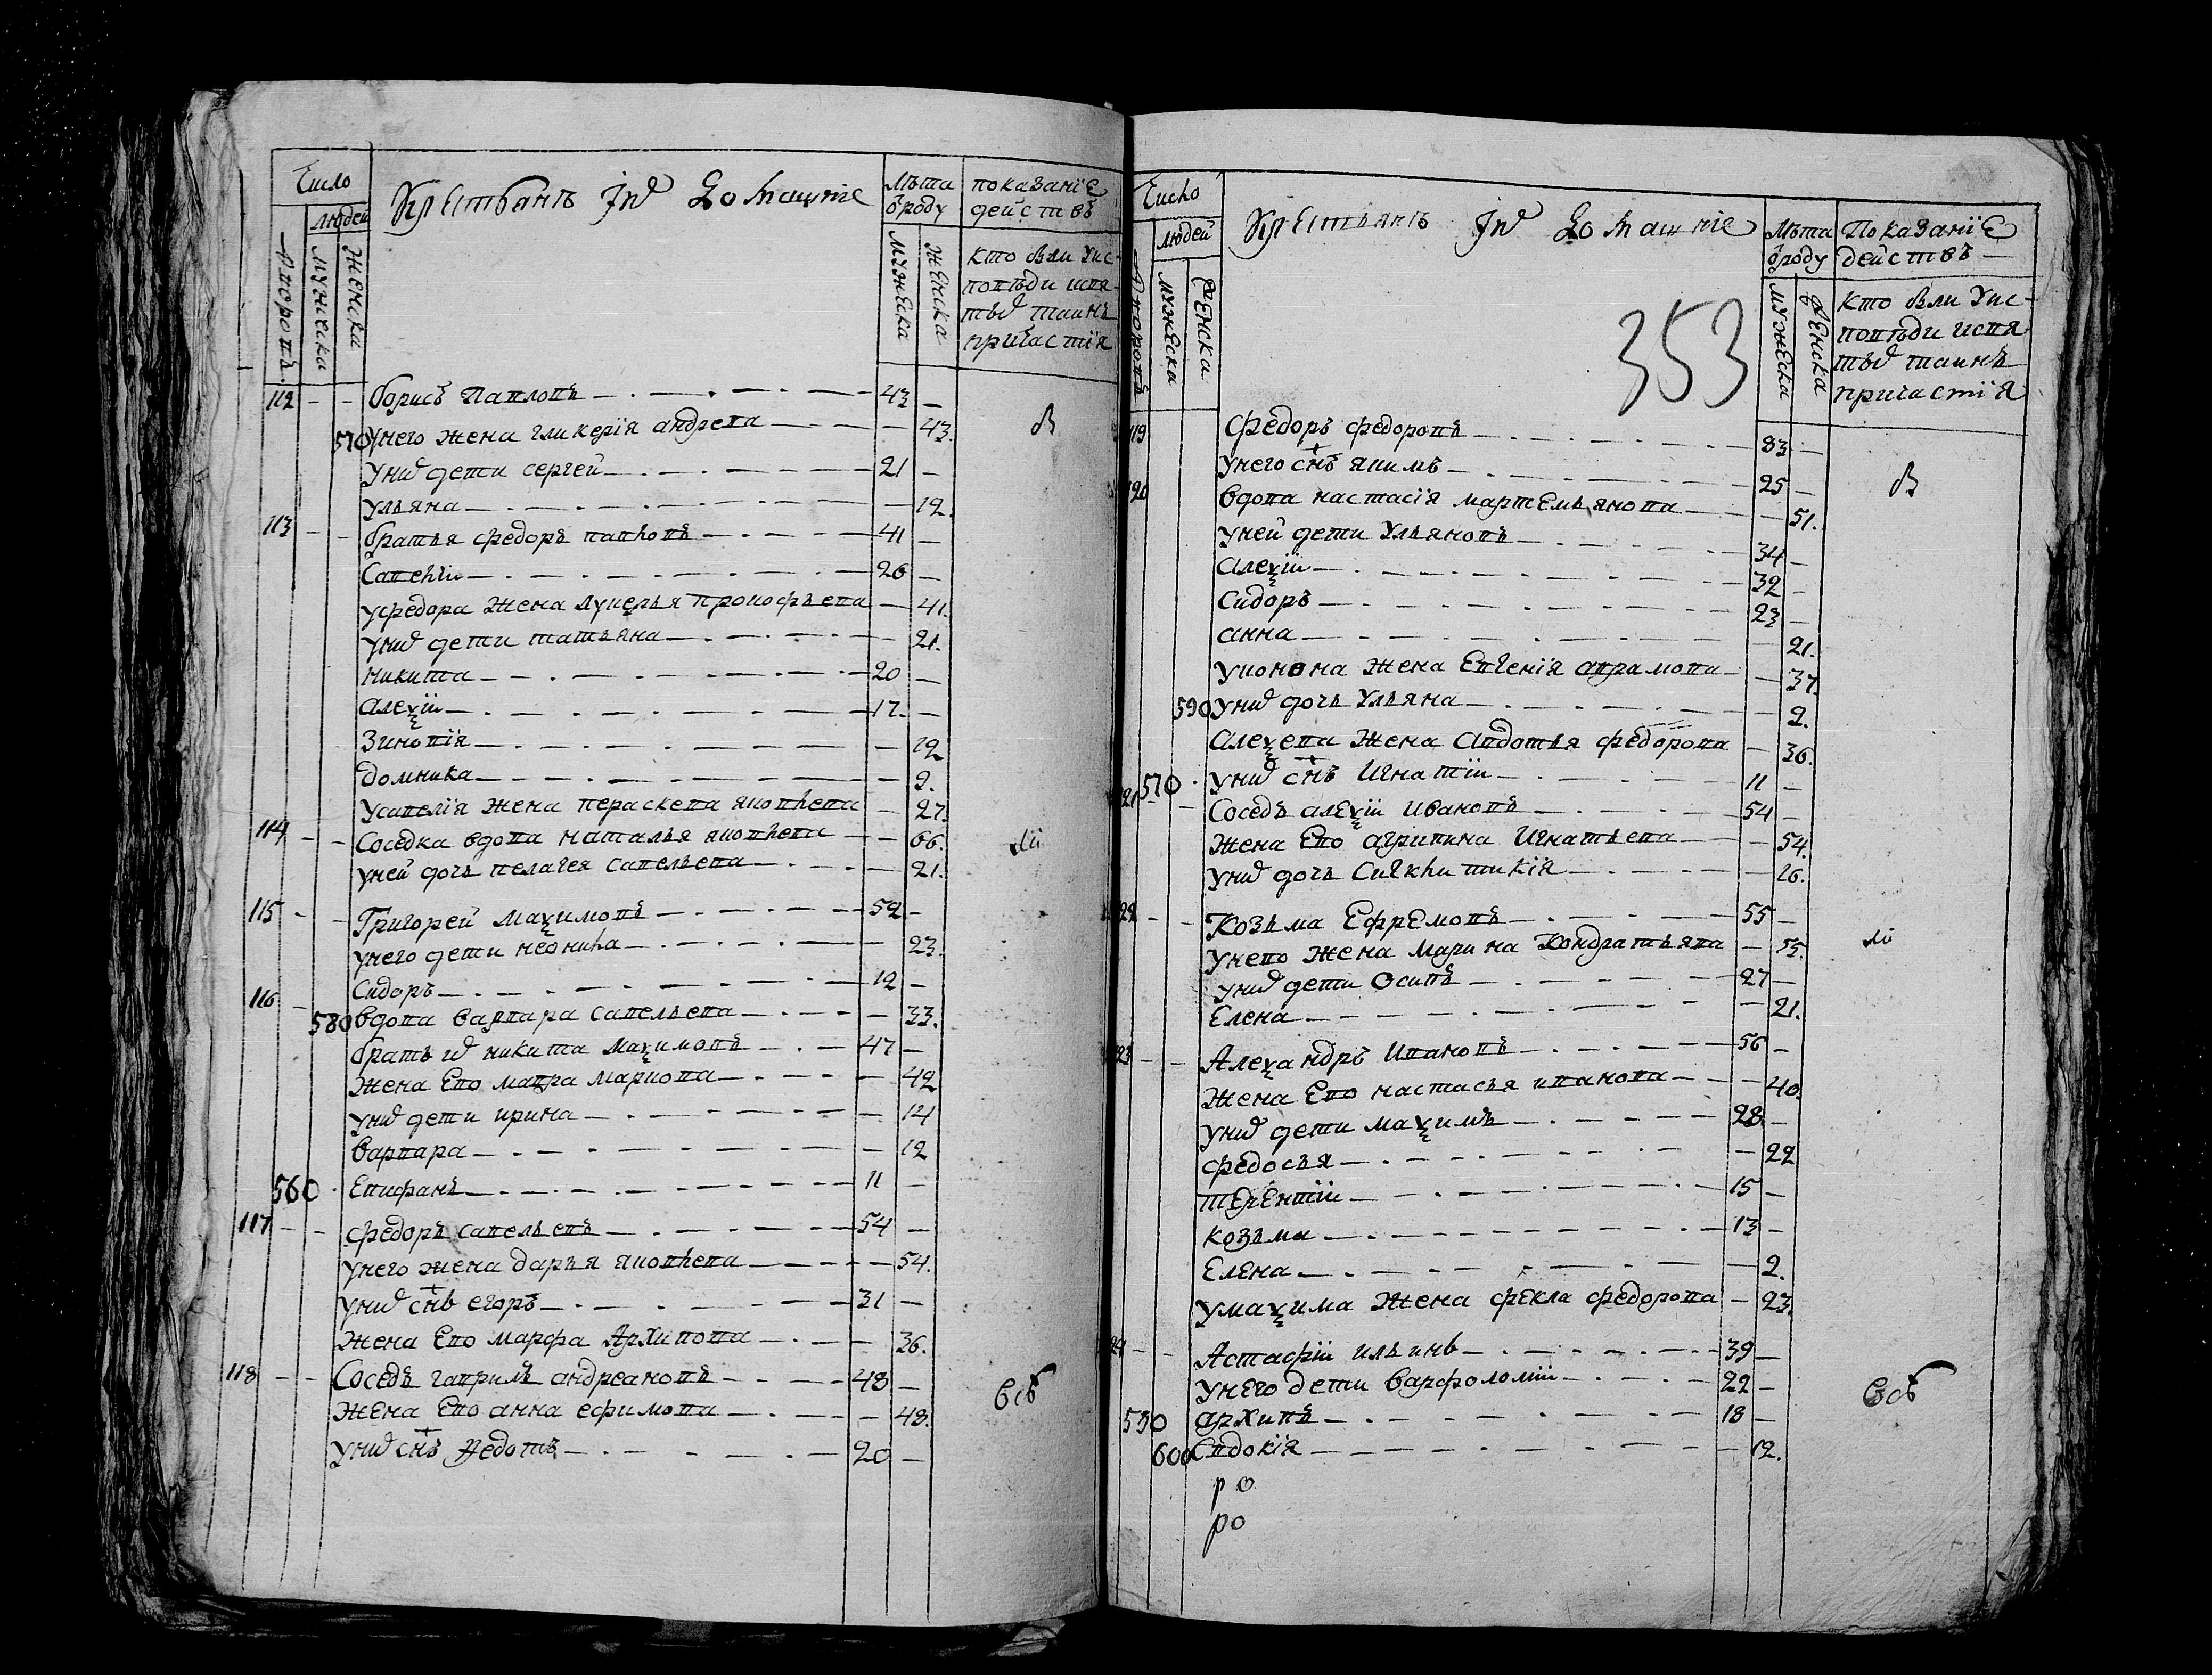 Число
Крестьянъ и ихъ домашние
Лѣта
ѿроду
показанїе
действъ
людей
дворовъ
мужеска
женска
мужеска
женска
кто были у ис-
поведи и свя-
тыхъ таинъ
причастїя
112 Борисъ Павловъ 43
570 унего жена гликерїя андрева 43. В
унихъ дети сергей 21
ульяна 12.
113 братья федоръ павловъ 41
Савелїи 26
уфедора жена лукерья прокофьева 41.
унихъ дети татьяна 21.
никита 20
алеѯїи 17.
Зиновїя 12
домника 2.
усавелїя жена пераскева яковлева 27.
114 Соседка вдова наталья яковлева 66.
уней дочь пелагея савельева 21.
115 Григорей Маѯимовъ 52
унего дети неонила 23.
Сидоръ 12
116 580 вдова варвара савельева 33.
братъ ихъ никита Маѯимовъ 47
жена Ево мавра маркова 42
унихъ дети ирина 14
варвара 12
560 Епифанъ 11
117 федоръ савельевъ 54
унего жена дарья яковлева 54.
унихъ снъ егоръ 31
жена Ево марфа Архипова 36.
118 Соседъ гаврилъ андреановъ 48
жена Ево анна ефимова 48. Всѣ
унихъ снъ Федотъ 20
Число
Крестьянъ и ихъ домашние
Лѣта
ѿроду
Показанїе
действъ
людей
дворовъ
мужеска
женска
353
мужеска
женска
кто были у ис-
поведи и свя-
тыхъ таинъ
причастїя
119 Федоръ федоровъ 83
унего снъ якимъ 25 В
120 вдова настасїя мартемьянова 51.
уней дети Ульяновъ 34
алеѯїи 32
Сидоръ 23
анна 21.
жена Евгенїя аврамова 37.
590 унихъ дочь Ульяна 2.
алеѯева жена Авдотья федорова 36.
570 унихъ снъ Игнатїи 11
121 Соседъ алеѯїи Ивановъ 54
жена Ево агрипина Игнатьева 54.
унихъ дочь Сигклитикїя 16.
122 Козьма Ефремовъ 55
унево жена Марина Кондратьява 55.
унихъ дети Осипъ 27
Елена 21.
123 Алеѯандръ Ивановъ 56
жена Ево настасья иванова 40.
унихъ дети маѯимъ 28
федосья 22
терентїи 15
козьма 13
Елена 2.
умаѯима жена фекла федорова 23.
124 Астафїи ильинъ 39
унего дети варфоломїи 22 Всѣ
530 архипъ 18
600 Евдокїя 12.
ро
ро